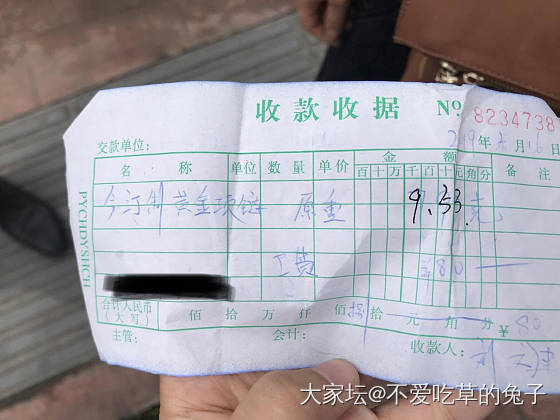 收款收据 № 8234738
2019年 月16日
交款单位：
名称 单位 数量 单价 金额 备注
百十万千百十元角分
今订制黄金项链 原重 9.33克
工费 ¥80
合计人民币
（大写） 佰 拾 万 仟 佰 捌拾 元 角 分 ¥80
主管： 会计： 收款人：
PYCHDYSHCH
大家坛@不爱吃草的兔子